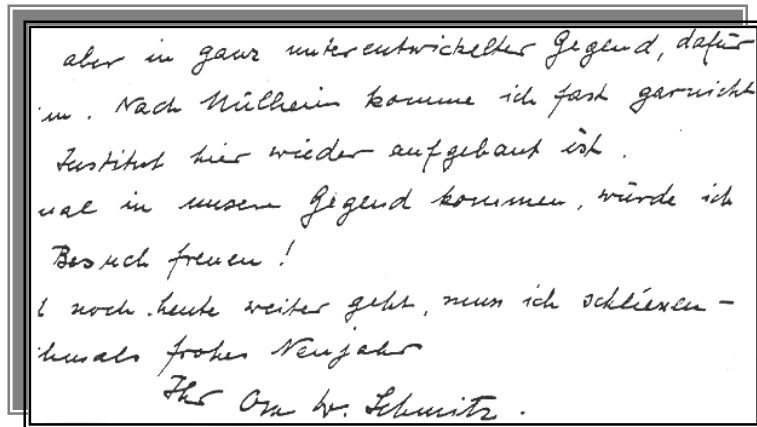 aber in ganz unterentwickelter Gegend, dafür
in. Nach Mülheim komme ich fast garnicht
Institut hier wieder aufgebaut ist.
mal in unsere Gegend kommen, würde ich
Besuch freuen!
l noch heute weiter geht, muss ich schliessen -
chmals frohes Neujahr
Ihr W. Schmitz.